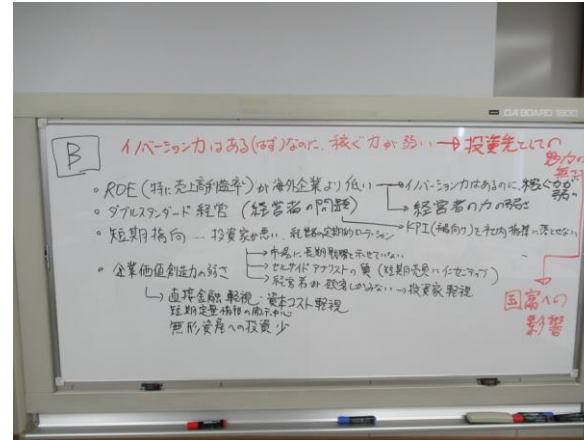 OA BOARD 1600
B
イノベーション力はある(はず)なのに、稼ぐ力が弱い → 投資先としての
魅力の
・ROE (特に売上高利益率)が海外企業より低い → イノベーション力はあるのに、稼ぐ力が
弱い
・ダブルスタンダード経営 (経営者の問題) → 経営者の力の弱さ
KPI(幅向け)を社内指標に落とせない
・短期指向 … 投資家が悪い、社長の定期的ローテーション
→ 市場に長期戦略を示せていない
→ セルサイドアナリストの質 (短期売買にインセンティブ)
→ 経営者が 投資しかみない → 投資家軽視
・企業価値創造力の弱さ
→ 直接金融軽視・資本コスト軽視
短期定量情報の開示中心
無形資産への投資少
国富への
影響